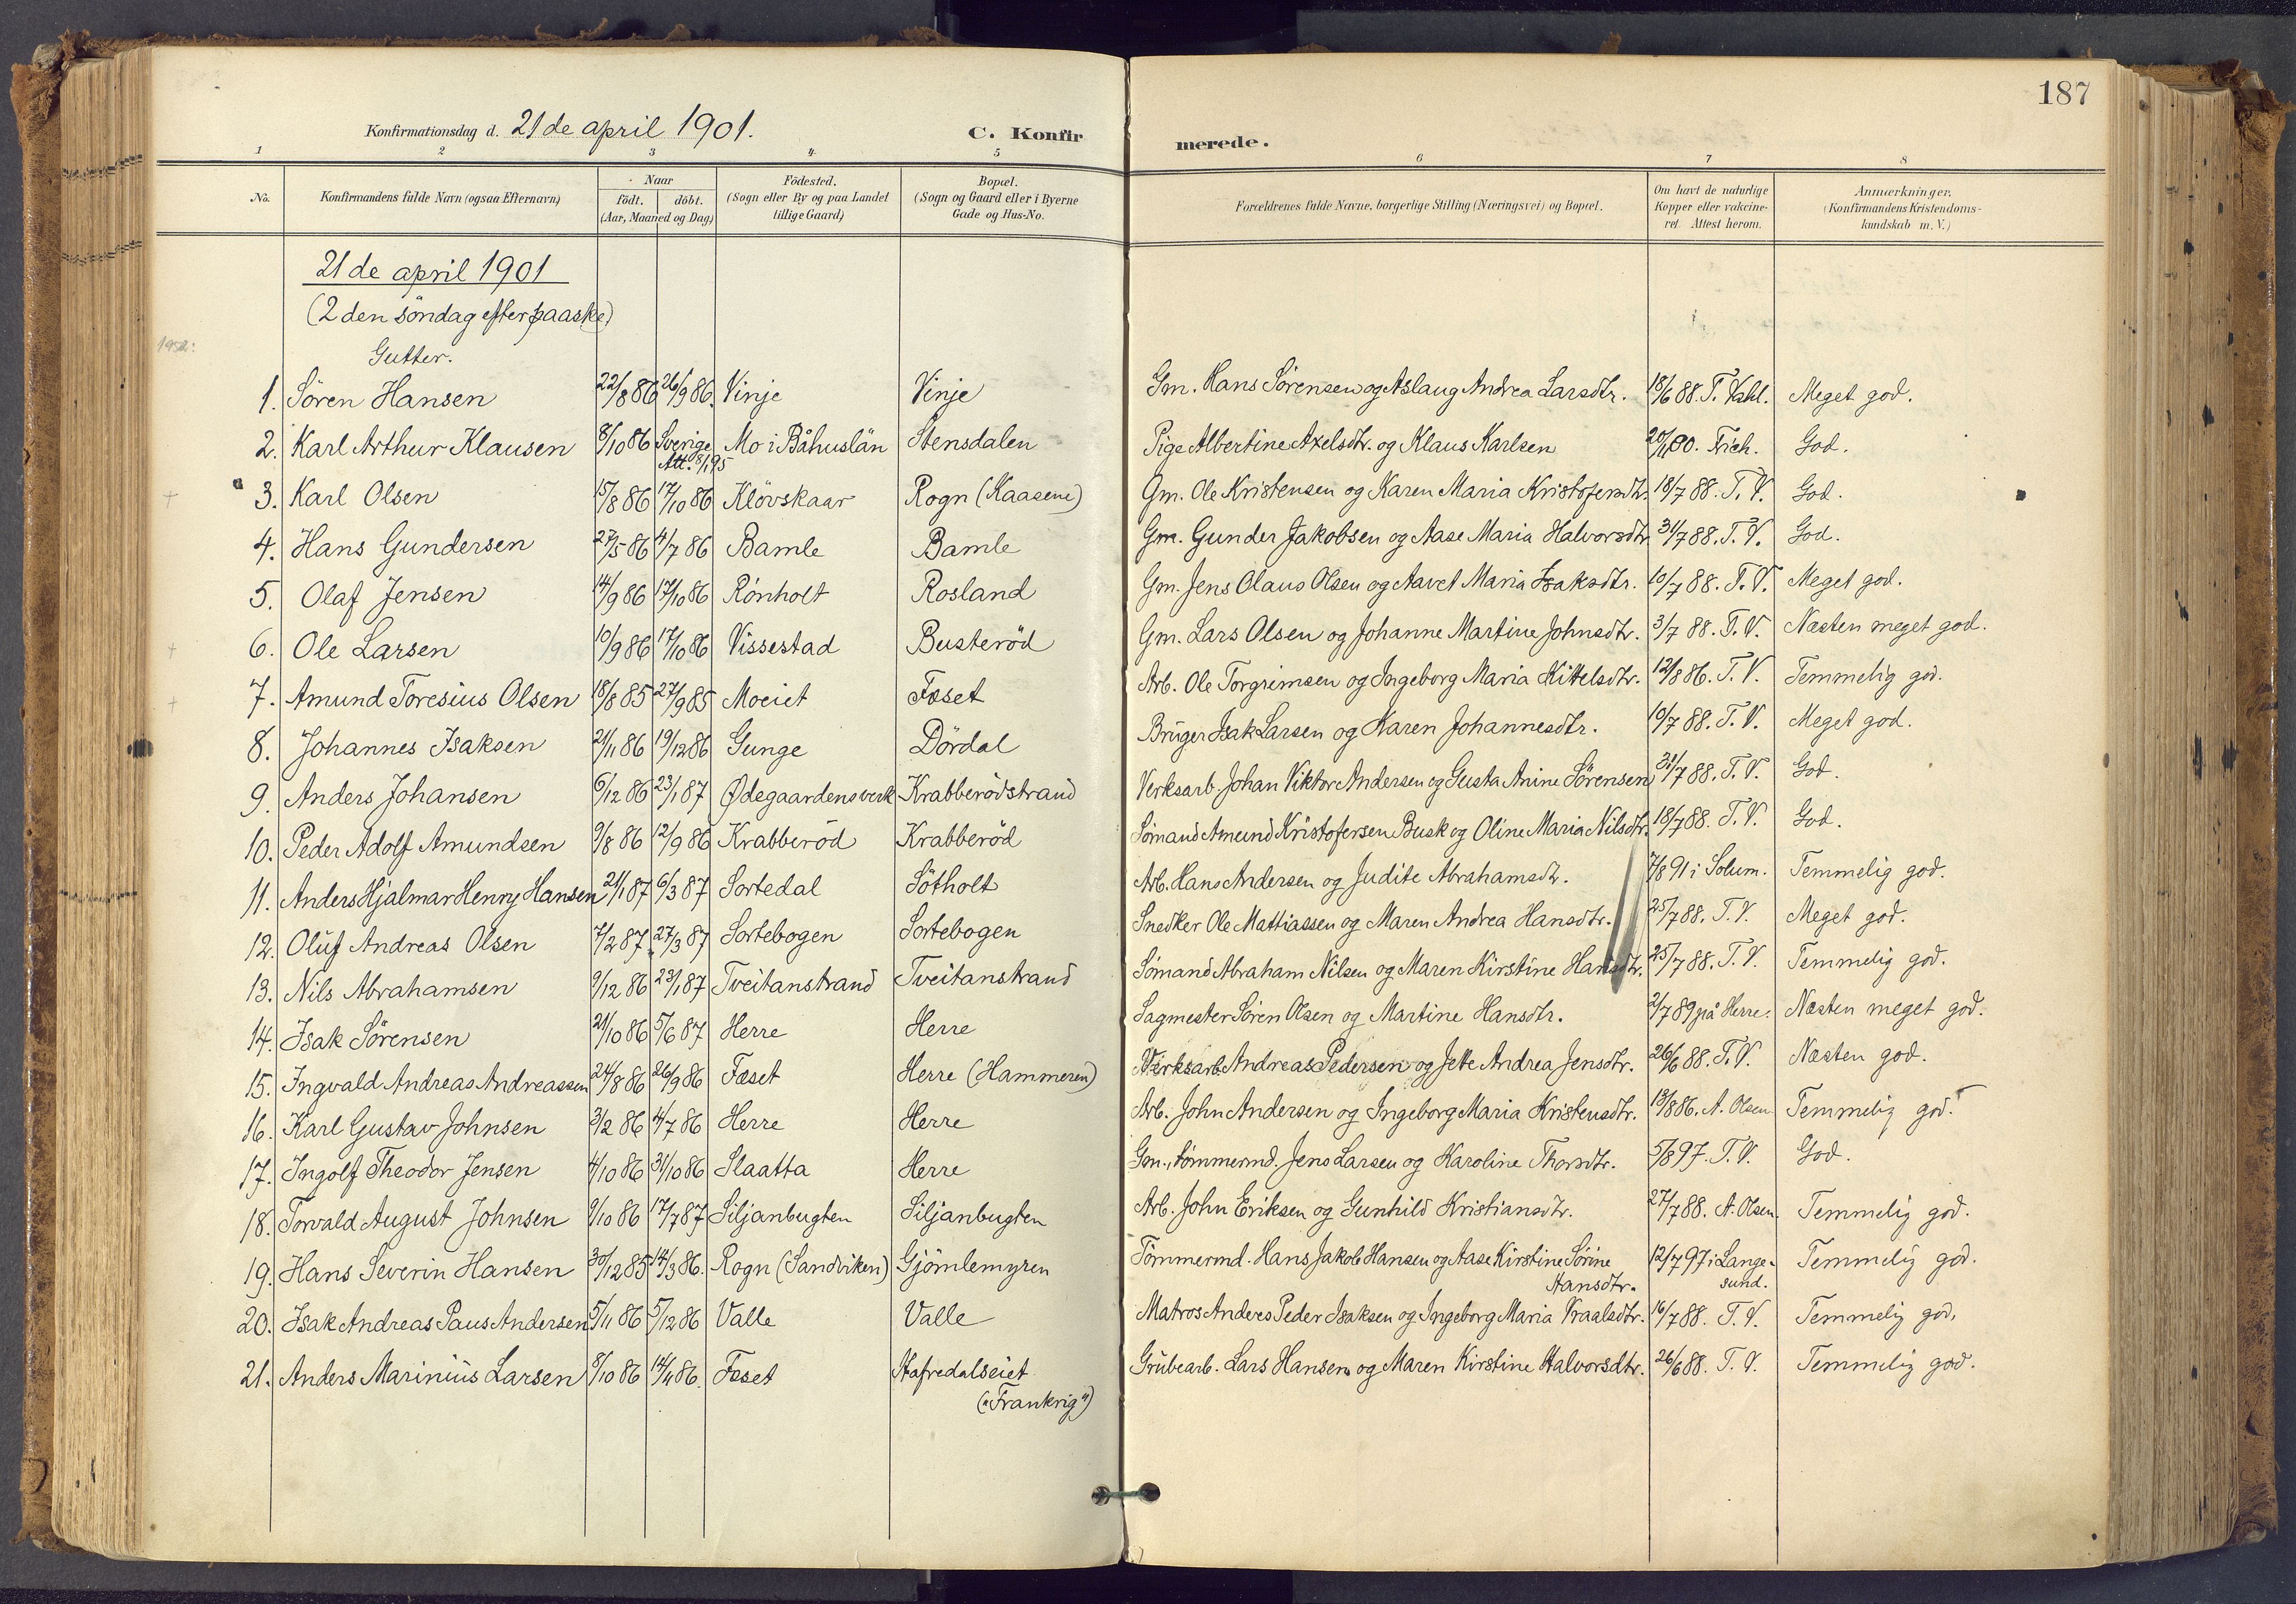 187
Konfirmationsdag d. 21 de april 1901. C. Konfir merede.
1 2 3 4 5 6 7 8
No. Konfirmandens fulde Navn (ogsaa Efternavn) Naar födt. döbt. (Aar, Maaned og Dag) Födested. (Sogn eller By og paa Landet tillige Gaard) Bopæl. (Sogn og Gaard eller i Byerne Gade og Hus-No. Forældrenes fulde Navne, borgerlige Stilling (Næringsvei) og Bopæl. Om havt de naturlige Kopper eller vakcineret. Attest herom. Anmærkninger. (Konfirmandens Kristendomskundskab m. V.)
21 de april 1901
(2 den söndag efter paaske)
Gutter.
1. Sören Hansen 22/8 86 26/9 86. Vinje Vinje Gm. Hans Sörensen og Aslaug Andrea Larsdtr. 18/6 88. T. Vahl. Meget god.
2. Karl Arthur Klausen 8/10 86 Sverige Att. 8/1 95 Mo i Båhuslän Stensdalen Pige Albertine Axelsdtr. og Klaus Karlsen 20/11 00. Frich. God.
3. Karl Olsen 15/8 86 17/10 86 Klövskaar Rogn (Kaasene) Gm. Ole Kristensen og Karen Maria Kristofersdtr. 18/7 88. T. V. God.
4. Hans Gundersen 27/5 86 4/7 86 Bamle Bamle Gm. Gunder Jakobsen og Aase Maria Halvorsdtr. 31/7 88. T. V. God.
5. Olaf Jensen 14/9 86 17/10 86 Rönholt Rosland Gm. Jens Olaus Olsen og Aavet Maria Isaksdtr. 10/7 88. T. V. Meget god.
6. Ole Larsen 10/9 86 17/10 86 Vissestad Busteröd Gm. Lars Olsen og Johanne Martine Johnsdtr. 3/7 88. T. V. Næsten meget god.
7. Amund Toresius Olsen 18/8 85 27/9 85 Moeiet Foset Arb. Ole Torgrimsen og Ingeborg Maria Kittelsdtr. 12/8 86. T. V. Temmelig god.
8. Johannes Isaksen 21/11 86 19/12 86 Gunge Dördal Bruger Isak Larsen og Karen Johannesdtr. 10/7 88. T. V. Meget god.
9. Anders Johansen 6/12 86 23/1 87 Ødegaardensverk Krabberödstrand Verksarb. Johan Viktor Andersen og Gusta Anine Sörensen 31/7 88. T. V. God.
10. Peder Adolf Amundsen 9/8 86 12/9 86 Krabberöd Krabberöd Sömand Amund Kristofersen Busk og Oline Maria Nilsdtr. 18/7 88. T. V. God.
11. Anders Hjalmar Henry Hansen 21/1 87 6/3 87 Sortedal Sötholt Arb. Hans Andersen og Judite Abrahamsdtr. 7/8 91 i Solum. Temmelig god.
12. Oluf Andreas Olsen 7/2 87 27/3 87 Sortebogen Sortebogen Snedker Ole Mattiassen og Maren Andrea Hansdtr. 25/7 88. T. V. Meget god.
13. Nils Abrahamsen 9/12 86 23/1 87 Tveitanstrand Tveitanstrand Sömand Abraham Nilsen og Maren Kirstine Hansdtr. 25/7 88. T. V. Temmelig god.
14. Isak Sörensen 21/10 86 5/6 87 Herre Herre Sagmester Sören Olsen og Martine Hansdtr. 2/7 89 på Herre. Næsten meget god.
15. Ingvald Andreas Andreassen 24/8 86 26/9 86 Fæset Herre (Hammeren) Verksarb. Andreas Pedersen og Jette Andrea Jensdtr. 26/6 88. T. V. Næsten god.
16. Karl Gustav Johnsen 3/2 86 4/7 86 Herre Herre Arb. John Andersen og Ingeborg Maria Kristensdtr. 13/8 86. A. Olsen Temmelig god.
17. Ingolf Theodor Jensen 4/10 86 31/10 86 Slaatta Herre Gm., tömmermd. Jens Larsen og Karoline Thorsdtr. 5/8 97. T. V. God.
18. Torvald August Johnsen 9/10 86 17/7 87 Siljanbugten Siljanbugten Arb. John Eriksen og Gunhild Kristiansdtr. 27/7 88. A. Olsen. Temmelig god.
19. Hans Severin Hansen 30/12 85 14/3 86. Rogn (Sandviken) Gjömlemyren Tömmermd. Hans Jakob Hansen og Aase Kirstine Sörine Hansdtr. 12/7 97 i Langesund. Temmelig god.
20. Isak Andreas Paus Andersen 5/11 86 5/12 86 Valle Valle Matros Anders Peder Isaksen og Ingeborg Maria Vraalsdtr. 16/7 88. T. V. Temmelig god.
21. Anders Marinius Larsen 8/10 86 14/11 86. Fæset Stafredalseiet ("Frankrig") Grubearb. Lars Hansen og Maren Kirstine Halvorsdtr. 26/6 88. T. V. Temmelig god.